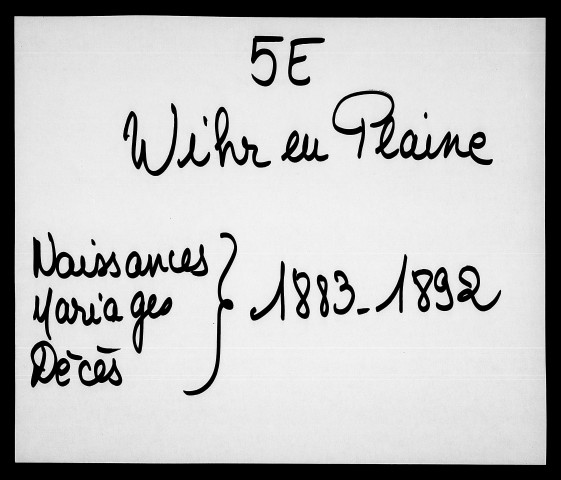 5E
Wihr en Plaine
Naissances
Mariages } 1883-1892
Décès